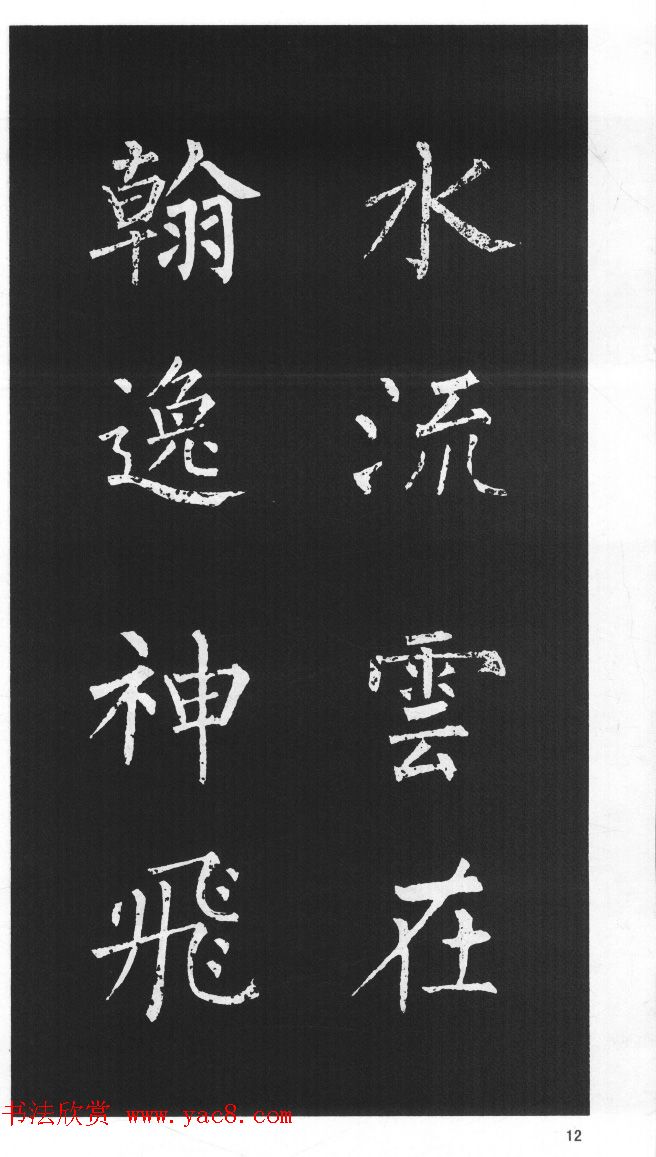 水流雲在
翰逸神飛
书法欣赏 www.yac8.com
12